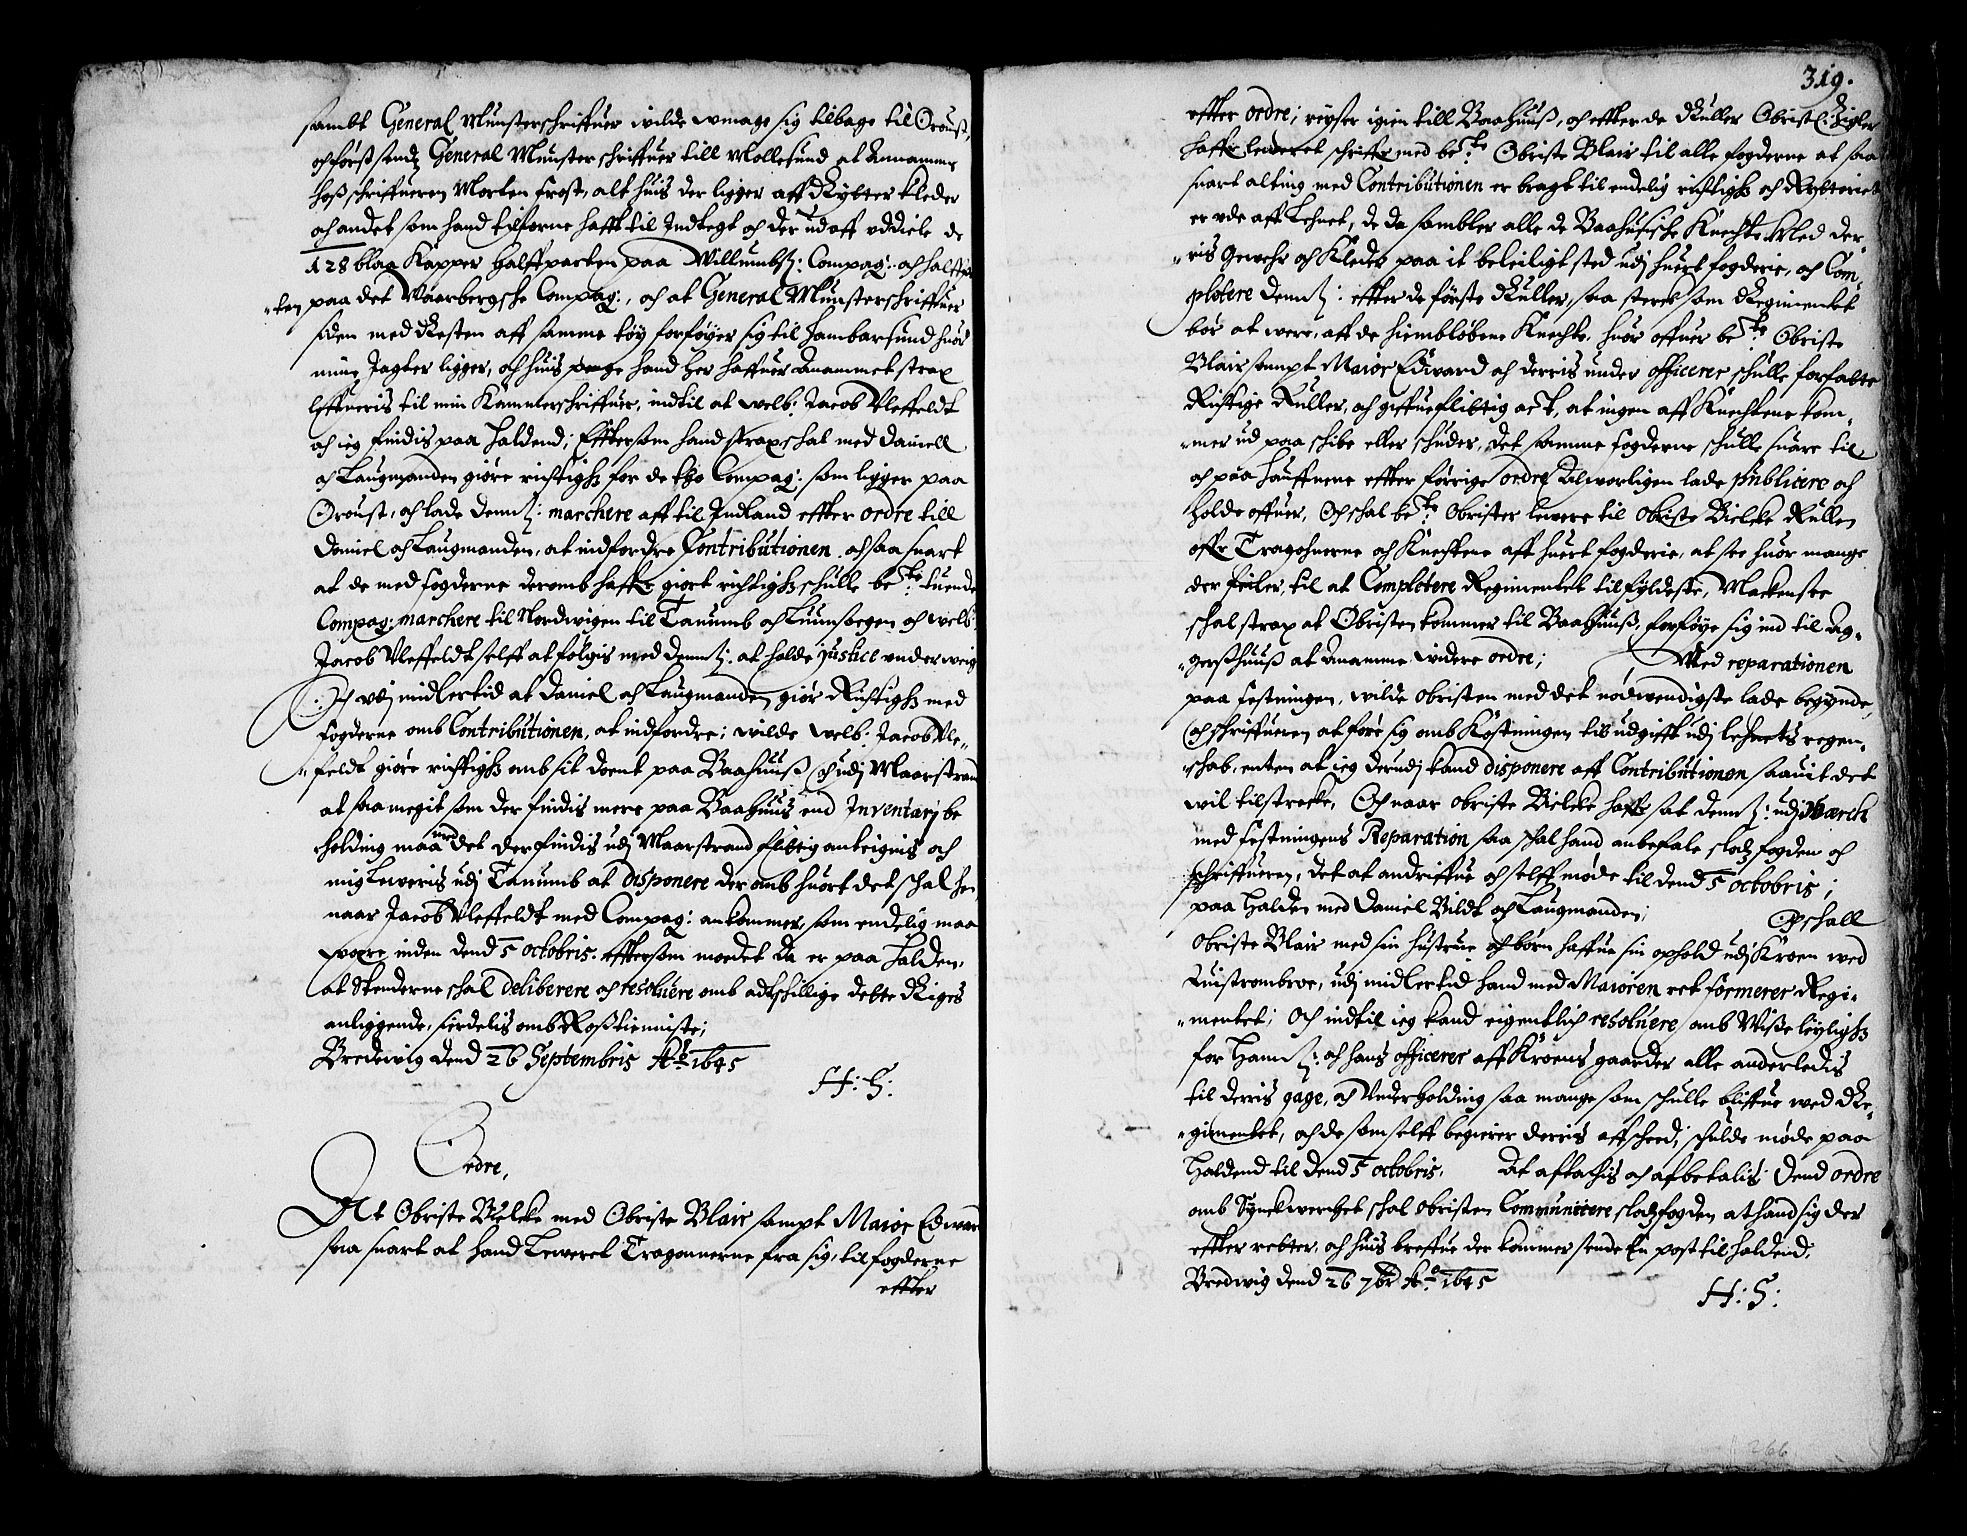 sambt General Munsterschriffuer wilde wmage sig tilbage til Oroust,
och först sendz General Munster schriffuer till Mollesund at Annamme
hoß schriffueren Morten Frost, alt huis der ligger aff Rytter kleder
och andet som hand tilforne hafft til Indtegt och der udaff uddiele de
128 blaa Kapper halffparten paa Willumbsz: Compag: och halffp
"ten paa det Waarbergsche Compag:, och at General Munsterschriffuer
siden med Resten aff samme töy forföyer sig til Hambarsund huor
mine Jagter ligger, och huis hand her haffuer Anammet strax
leffueris til min Kammerschriffuer, indtil at welb: Jacob Vleffeldt
och ieg findis paa Haldend; Effttersom hand strax schal med Daniell
och Laugmanden giöre richtighz for de tho Compag: som ligger paa
Oroust, och lade dennz: marchere aff til Indland effter ordre till
Daniel och Laugmanden, at indfordre Contributionen och saa snart
at de med fogderne deromb haffr giort richtighz schulle bete: tuende
Compag: marchere til Nordwigen til Tanumb och Quinsbegen och welb:
Jacob Vleffeldt selff at fölgis med dennz: at holde justice underweig
Och udj midlertid at Daniel och Laugmanden giör Richtighz med
fogderne omb Contributionen, at indfordre; wilde welb: Jacob Vle"
"feldt giöre richtighz omb sit doent paa Baahuuß och udj Maarstrand
at saa megit som der findis mere paa Baahuus end Inventarj be
holding maa med det der findis udj Maarstrand flittig anteignis och
mig leweris udj Tanumb at disponere der omb huort det schal hen
naar Jacob Vleffeldt med Compag: ankommer, som endelig maa
were inden dend 5 octobris. effttersom moedet da er paa Halden,
at Stenderne schal deliberere och resoluere omb adtschillige dette Riges
anliggende, serdelis omb Roßtienniste;
Bredwig dend 26 Septembris Ao 1645
H: S:
Ordre,
At Obriste Bielcke med Obriste Blair sampt Maior Edward
saa snart at hand leweret Tragonnerne fra sig, til fogderne
effter
319.
effter ordre; reyser igien till Baahuuß, och effter de Ruller Obrist: Zigler
haffr leweret schriffr med bete: Obriste Blair til alle fogderne at saa
snart alting med Contributionen er bragt til endelig richtighz och Rytteriet
er ude aff Lehnet, de da sambler alle de Baahusische Knechte Med der"
"ris Gewehr och Kleder paa it beleiligt sted udj huert fogderie, och Com"
pletere dennz: effter de förste Ruller, saa sterck som Regimentet
bör at were, aff de hiemblöbene Knechte, huor offuer bete: Obriste
Blair sampt Maior Edward och derris under officerer schulle forfatte
Richtige Ruller, och giffue flittig act, at ingen aff Knechtene kom"
"mer ud paa schibe eller schuder, det samme fogderne schulle suare til
och paa Hauffnene effter förrige ordre alworligen lade publicere och
holde offuer, Och schal bete: Obrister levere til Obriste Bielcke Rullen
offr Tragohnerne och Knechtene aff huert fogderie, at see huor mange
der feiler, til at Completere Regimentet til fyldeste, Mackensee
schal strax at Obristen kommer til Baahuuß, forföye sig ind til Ag"
"gerßhuuß at Anamme widere ordre; Med reparationen
paa festningen, wilde obristen med det nödwendigste lade begynde,
och schriffueren at före sig omb Kostningen til udgifft udj lehnets regen"
schab, enten at ieg derudj kand disponere aff Contributionen saauit det
wil tilstrecke, Och naar obriste Bielcke haffr sat dennz: udj Werck
med festningens Reparation saa schal hand anbefale slotzfogden och
schriffueren, det at andriffue och selff möde til dend 5 octobris;
paa Halden med Daniel Bildt och Laugmanden; Och schall
Obriste Blair med sin hustrue och börn haffue sin ophold udj Kroen wed
Quistrombroe, udj midlertid hand med Maioren ret formerer Regi"
"mentet; Och indtil ieg kand eigentlich resoluere omb Wisse leylighz
for hannz: och hans officerer aff Kroens gaarder alle anderledis
til derris gage, och Underholding saa mange som schulle bliffue wed Re"
"gimentet, och de som selff begierer derris affscheed, schulde möde paa
Haldend til dend 5 octobris. At aftachis och afbetalis. Dend ordre
omb Synckwerchet schal obristen Communicere slotzfogden at hand sig der
effter retter, och huis breffue der kommer sende En post til haldend,
Bredwig dend 26 7br Ao 1645
H: S:
266